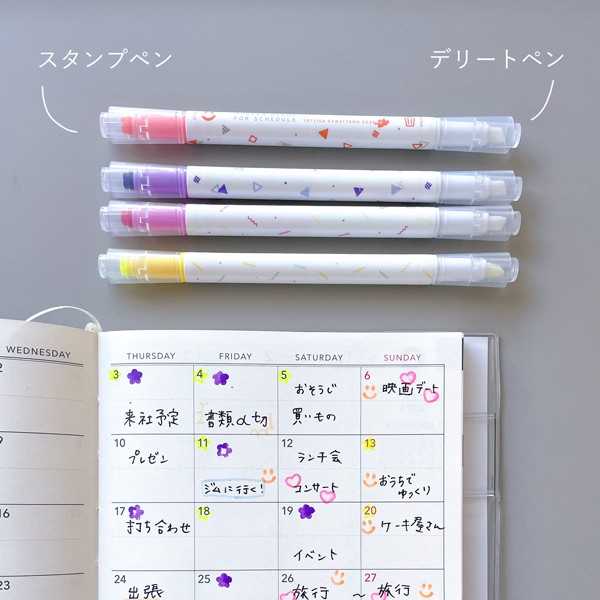 スタンプペン
デリートペン
FOR SCHEDULE
WEDNESDAY
THURSDAY
FRIDAY
SATURDAY
SUNDAY
2
3
4
5
6
おそうじ
映画デート
来社予定
書類〆切
買いもの
9
10
11
12
13
プレゼン
ランチ会
ジムに行く!
コンサート
おうちで
ゆっくり
16
17
18
19
20
打ち合わせ
ケーキ屋さん
イベント
23
24
25
26
27
出張
旅行 ~ 旅行